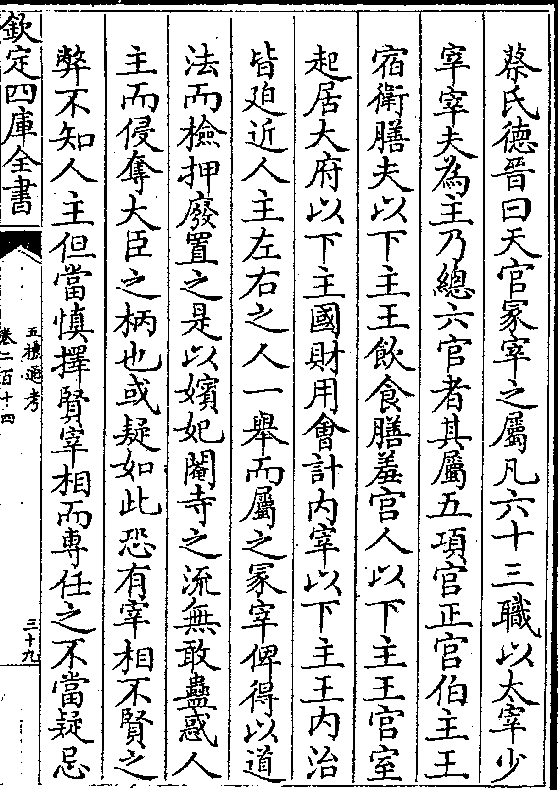 蔡氏德晉曰天官冢宰之屬凡六十三職以太宰少
宰宰夫為主乃總六官者其屬五項官正官伯主王
宿衛膳夫以下主王飲食膳羞官人以下主王官室
起居大府以下主國財用會計内宰以下主王内治
皆廹近人主左右之人一舉而屬之冢宰俾得以道
法而檢押廢置之是以嬪妃閹寺之流無敢蠱惑人
主而侵奪大臣之柄也或疑如此恐有宰相不賢之
弊不知人主但當慎擇賢宰相而專任之不當疑忌
欽定四庫全書
五禮通考
卷二百十四
三十九